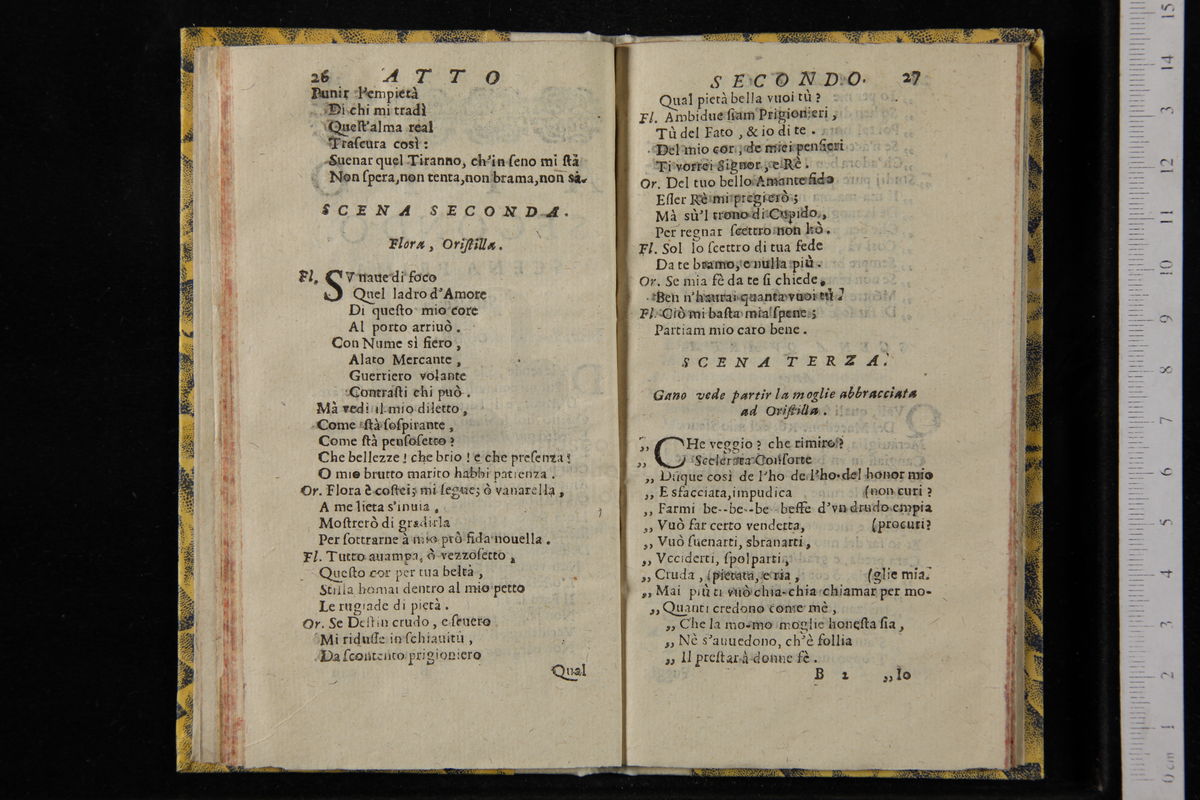 26 ATTO
Punir l'empietà
Di chi mi tradì
Queſt'alma real
Traſcura così:
Suenar quel Tiranno, ch'in ſeno mi ſtà
Non ſpera, non tenta, non brama, non sà.
SCENA SECONDA.
Flora, Oriſtilla.
Fl. SV naue di foco
Quel ladro d'Amore
Di queſto mio core
Al porto arriuò.
Con Nume sì fiero,
Alato Mercante,
Guerriero volante
Contraſti chi può.
Mà vedi il mio diletto,
Come ſtà ſoſpirante,
Come ſtà penſoſetto?
Che bellezze! che brio! e che preſenza!
O mio brutto marito habbi patienza.
Or. Flora è coſtei; mi ſegue; ò vanarella,
A me lieta s'inuia,
Moſtrerò di gradirla
Per ſottrarne à mio prò fida nouella.
Fl. Tutto auampa, ò vezzoſetto,
Queſto cor per tua beltà,
Stilla homai dentro al mio petto
Le rugiade di pietà.
Or. Se Deſtin crudo, e ſeuero
Mi riduſſe in ſchiauitù,
Da ſcontento prigioniero
Qual
SECONDO. 27
Qual pietà bella vuoi tù?
Fl. Ambidue ſiam Prigionieri,
Tù del Fato, & io di te.
Del mio cor, de miei penſieri
Ti vorrei Signor, e Rè.
Or. Del tuo bello Amante fido
Eſſer Rè mi pregierò;
Mà sù'l trono di Cupido,
Per regnar ſcettro non hò.
Fl. Sol lo ſcettro di tua fede
Da te bramo, e nulla più.
Or. Se mia fè da te ſi chiede,
Ben n'haurai quanta vuoi tù?
Fl. Ciò mi baſta mia ſpene;
Partiam mio caro bene.
SCENA TERZA.
Gano vede partir la moglie abbracciata
ad Oriſtilla.
„ CHe veggio? che rimiro?
„ Scelerata Conſorte
„ Dūque così de l'ho de l'ho-del honor mio
„ E sfacciata, impudica (non curi?
„ Farmi be--be--be beffe d'vn drudo empia
„ Vuò far certo vendetta, (procuri?
„ Vuò ſuenarti, sbranarti,
„ Vcciderti, ſpolparti,
„ Cruda, ſpietata, e ria, (glie mia.
„ Mai più ti vuò chia-chia chiamar per mo-
„ Quanti credono come mè,
„ Che la mo-mo moglie honeſta ſia,
„ Nè s'auuedono, ch'è follia
„ Il preſtar à donne fè.
B 2 „Io
15
14
3
12
11
10
9
8
7
6
5
4
3
2
1
0 cm